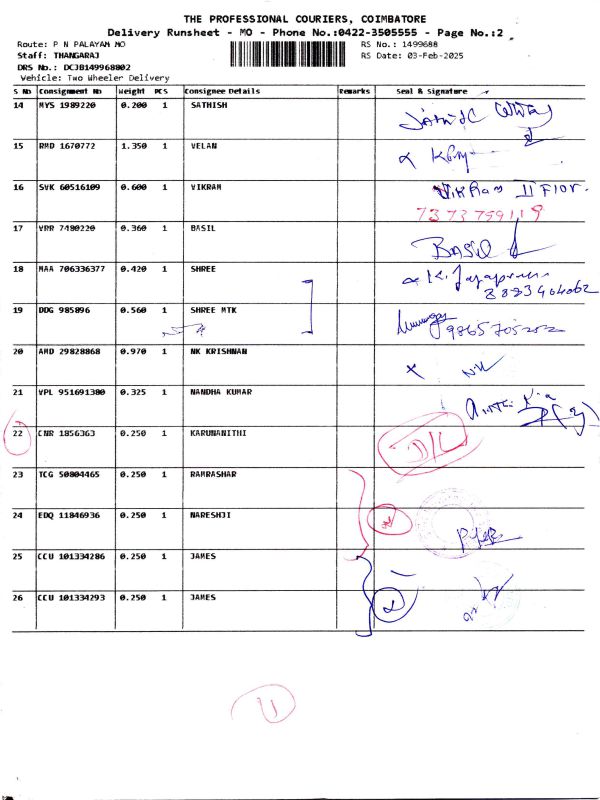 THE PROFESSIONAL COURIERS, COIMBATORE
Delivery Runsheet - MO - Phone No.:0422-3505555 - Page No.:2
Route: P N PALAYAM MO RS No.: 1499688
Staff: THANGARAJ RS Date: 03-Feb-2025
DRS No.: DCJB149968802
Vehicle: Two Wheeler Delivery
S No Consignment No Weight PCS Consignee Details Remarks Seal & Signature
14 MYS 1989220 0.200 1 SATHISH
15 RMD 1670772 1.350 1 VELAN
16 SVK 60516109 0.600 1 VIKRAM Vikram II Flor.
7373759119
17 VRR 7480220 0.360 1 BASIL Basil
18 MAA 706336377 0.420 1 SHREE
19 DDG 985896 0.560 1 SHREE MTK
20 AMD 29828868 0.970 1 NK KRISHNAN
21 VPL 951691380 0.325 1 NANDHA KUMAR
22 CNR 1856363 0.250 1 KARUNANITHI
23 TCG 50804465 0.250 1 RAMRASHAR
24 EDQ 11846936 0.250 1 NARESHJI
25 CCU 101334286 0.250 1 JAMES
26 CCU 101334293 0.250 1 JAMES